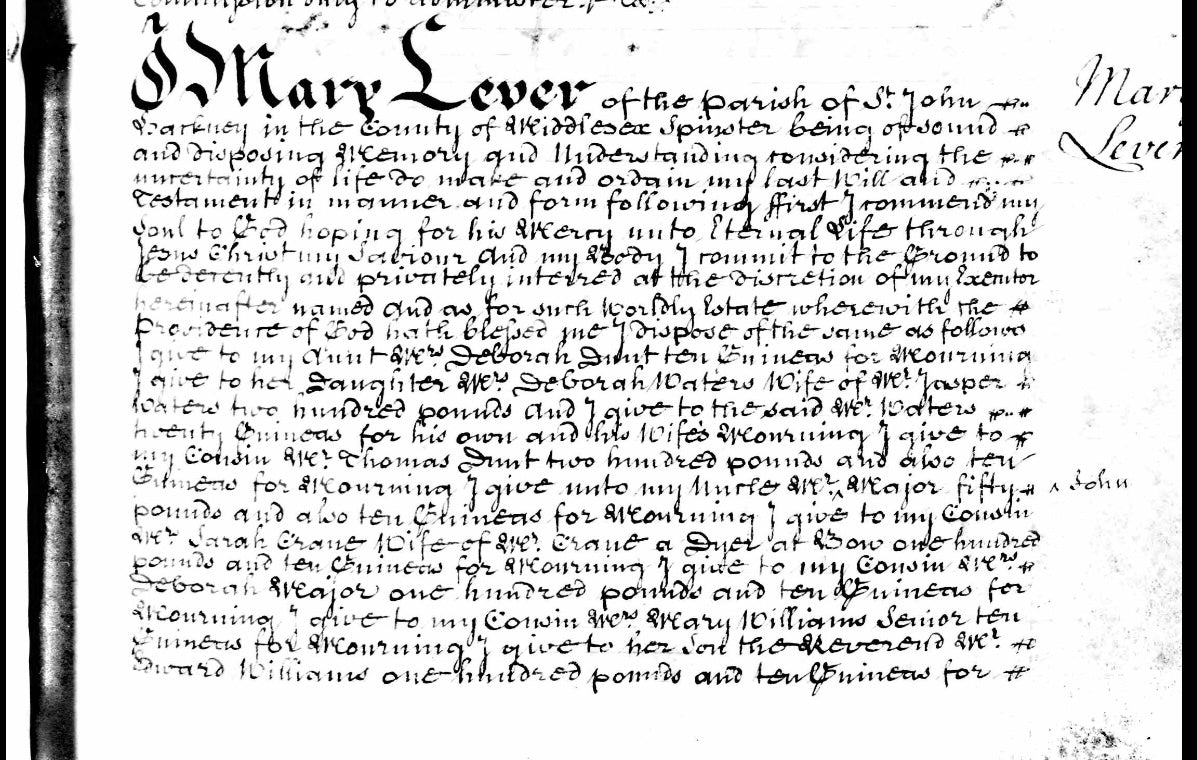 Commission duly to administer
I Mary Lever of the Parish of St. John
Mary
Hackney in the County of Middlesex Spinster being of sound
Lever
and disposing Memory and Understanding considering the
uncertainty of life do make and ordain my last Will and
Testament in manner and form following ffirst I commend my
Soul to God hoping for his Mercy unto Eternal Life through
Jesus Christ my Saviour and my Body I commit to the Ground to
be decently and privately interred at the discretion of my Executor
hereinafter named and as for such Worldly Estate wherewith the
Providence of God hath blessed me I dispose of the same as follows
I give to my Aunt Mrs. Deborah Dunt ten Guineas for Mourning
I give to her Daughter Mrs. Deborah Waters Wife of Mr. Jasper
Waters two hundred pounds and I give to the said Mr. Waters
twenty Guineas for his own and his Wife's Mourning I give to
my Cousin Mr. Thomas Dunt two hundred pounds and also ten
Guineas for Mourning I give unto my Uncle Mr. ^ Major fifty
^ John
pounds and also ten Guineas for Mourning I give to my Cousin
Mrs. Sarah Crane Wife of Mr. Crane a Dyer at Bow one hundred
pounds and ten Guineas for Mourning I give to my Cousin Mrs.
Deborah Major one hundred pounds and ten Guineas for
Mourning I give to my Cousin Mrs. Mary Williams Senior ten
Guineas for Mourning I give to her Son the Reverend Mr.
Edward Williams one hundred pounds and ten Guineas for